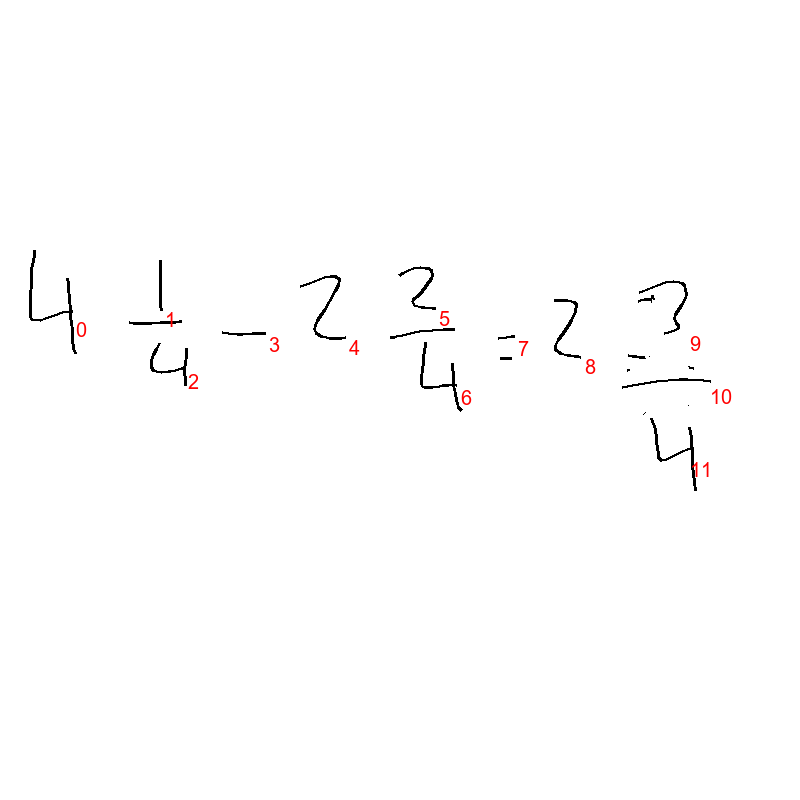 4 1/4 - 2 2/4 = 2 3/4
0 1 2 3 4 5 6 7 8 9 10 11